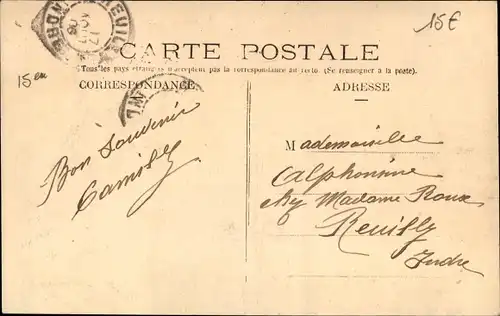 15€
CARTE POSTALE
(Tous les pays étrangers n'acceptent pas la correspondance au recto. (Se renseigner à la poste).
15 eu
CORRESPONDANCE
ADRESSE
Bon Souvenir
Camilly
Mademoiselle
Alphonsine
chez Madame Roux
Reuilly
Indre